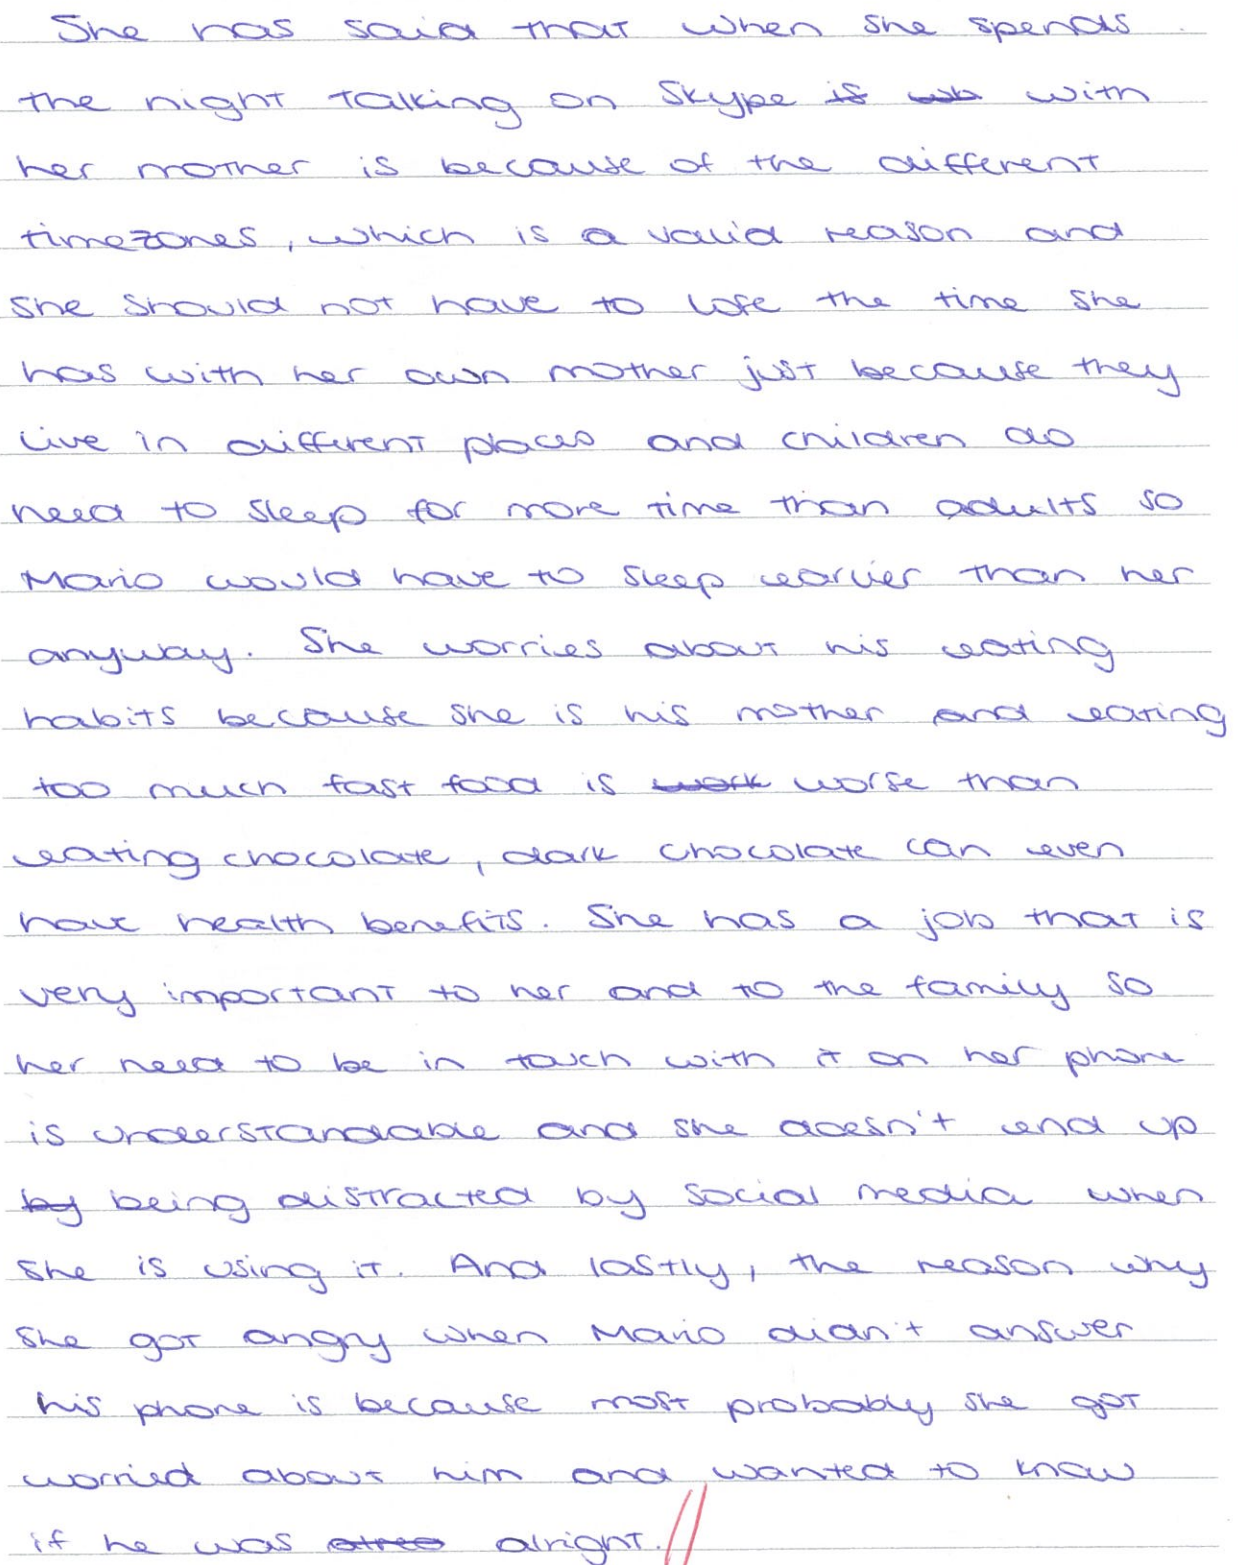 She has said that when she spends
the night talking on Skype is wh with
her mother is because of the different
timezones, which is a valid reason and
she should not have to lose the time she
has with her own mother just because they
live in different places and children do
need to sleep for more time than adults so
Mario would have to sleep earlier than her
anyway. She worries about his eating
habits because she is his mother and eating
too much fast food is work worse than
eating chocolate, dark chocolate can even
have health benefits. She has a job that is
very important to her and to the family so
her need to be in touch with it on her phone
is understandable and she doesn't end up
by being distracted by social media when
she is using it. And lastly, the reason why
she got angry when Mario didn't answer
his phone is because most probably she got
worried about him and wanted to know
if he was alright.